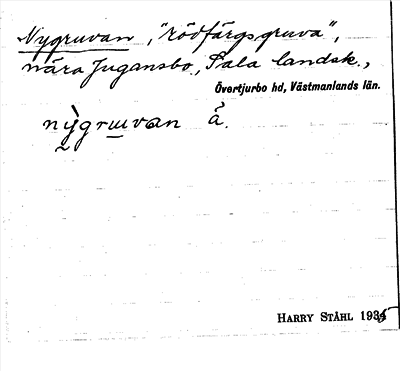 Nygruvan, "rödfärgsgruva",
nära Jugansbo, Sala landsk.,
Övertjurbo hd, Västmanlands län.
nỳgruvan å.
HARRY STÅHL 1935